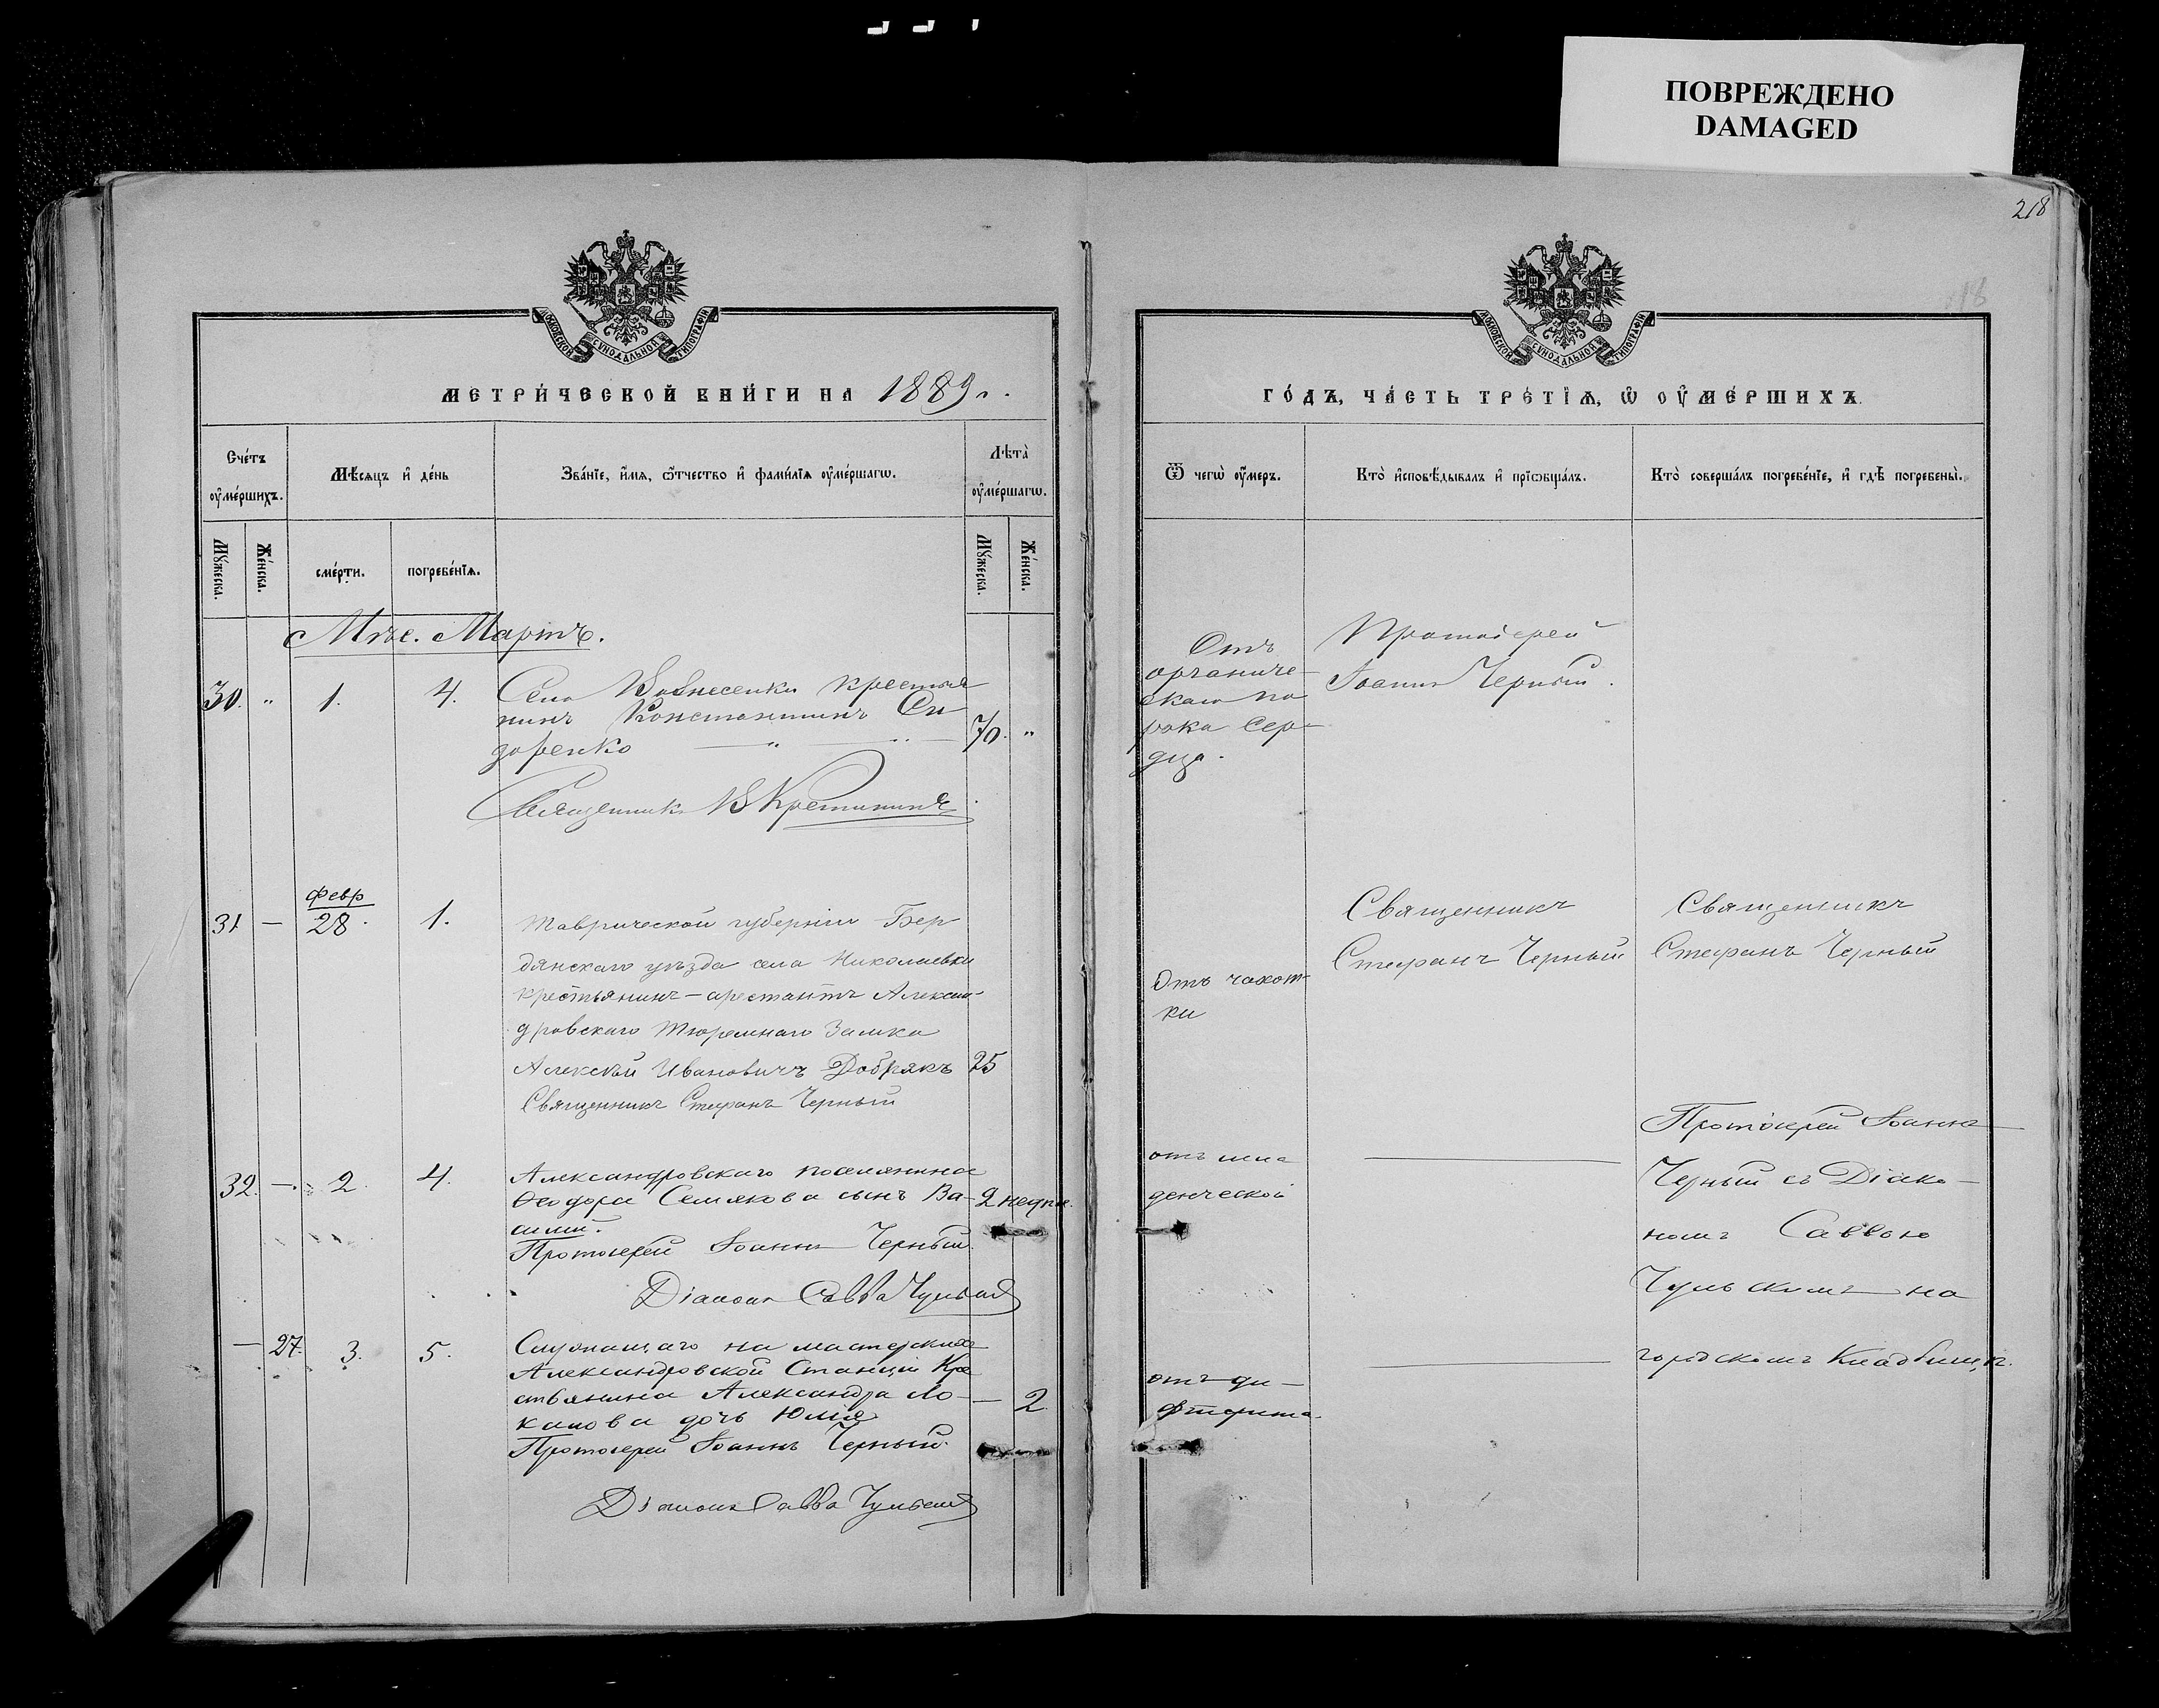 ПОВРЕЖДЕНО
DAMAGED
218
МОСКОВСКОЙ СѴНОДАЛЬНОЙ ТИПОГРАФІИ
МЕТРИ́ЧЕСКОЙ КНИ́ГИ НА 1889 г.
Сче́тъ ѹ҆ме́ршихъ.
Мѣ́сяцъ и҆ де́нь
Зва́нїе, и҆́мѧ, ѻ҆́тчество и҆ фами́лїѧ ѹ҆ме́ршагѡ.
Лѣта̀ ѹ҆ме́ршагѡ.
Мꙋ́жеска.
Же́нска.
сме́рти.
погребе́нїѧ.
Мꙋ́жеска.
Же́нска.
Мце. Мартъ.
30. " 1. 4. Села Вознесенки крестья
нинъ Константинъ Си
доренко 70. "
Священникъ В Кремининъ
февр
31 — 28. 1. Таврической губерніи Бер
дянскаго уѣзда села Николаевки
крестьянинъ - арестантъ Алексан-
дровскаго Тюремнаго Замка
Алексѣй Ивановичъ Добрякъ 25
Священникъ Стефанъ Черный
32. — 2. 4. Александровскаго поселянина
Ѳеодора Семякова сынъ Ва- 2 недѣли.
силій.
Протоіерей Іоаннъ Черный.
Діаконъ Савва Чульскій
— 27. 3. 5. Служащаго на мастерскихъ
Александровской Станціи Кре
стьянина Александра Ло- — 2.
капова дочь Юлія
Протоіерей Іоаннъ Черный.
Діаконъ Савва Чульскій
МОСКОВСКОЙ СѴНОДАЛЬНОЙ ТИПОГРАФІИ
ГО́ДЪ, ЧА́СТЬ ТРЕ́ТЇѦ, Ѡ҆ ОУ҆МЕ́РШИХЪ.
Ѿ чегѡ̀ ѹ҆́меръ.
Кто̀ и҆сповѣ́дывалъ и҆ прїѻбща́лъ.
Кто̀ соверша́лъ погребе́нїе, и҆ гдѣ̀ погребены̀.
Отъ
органиче-
скаго по
рока сер-
дца.
Протоіерей
Іоаннъ Черный.
Отъ чахот-
ки
Священникъ
Стефанъ Черный
Священникъ
Стефанъ Черный
отъ мла
денческой
—
Протоіерей Іоаннъ
Черный съ Діако-
номъ Саввою
Чульскимъ на
городскомъ Кладбищѣ.
отъ ди-
фтерита.
—